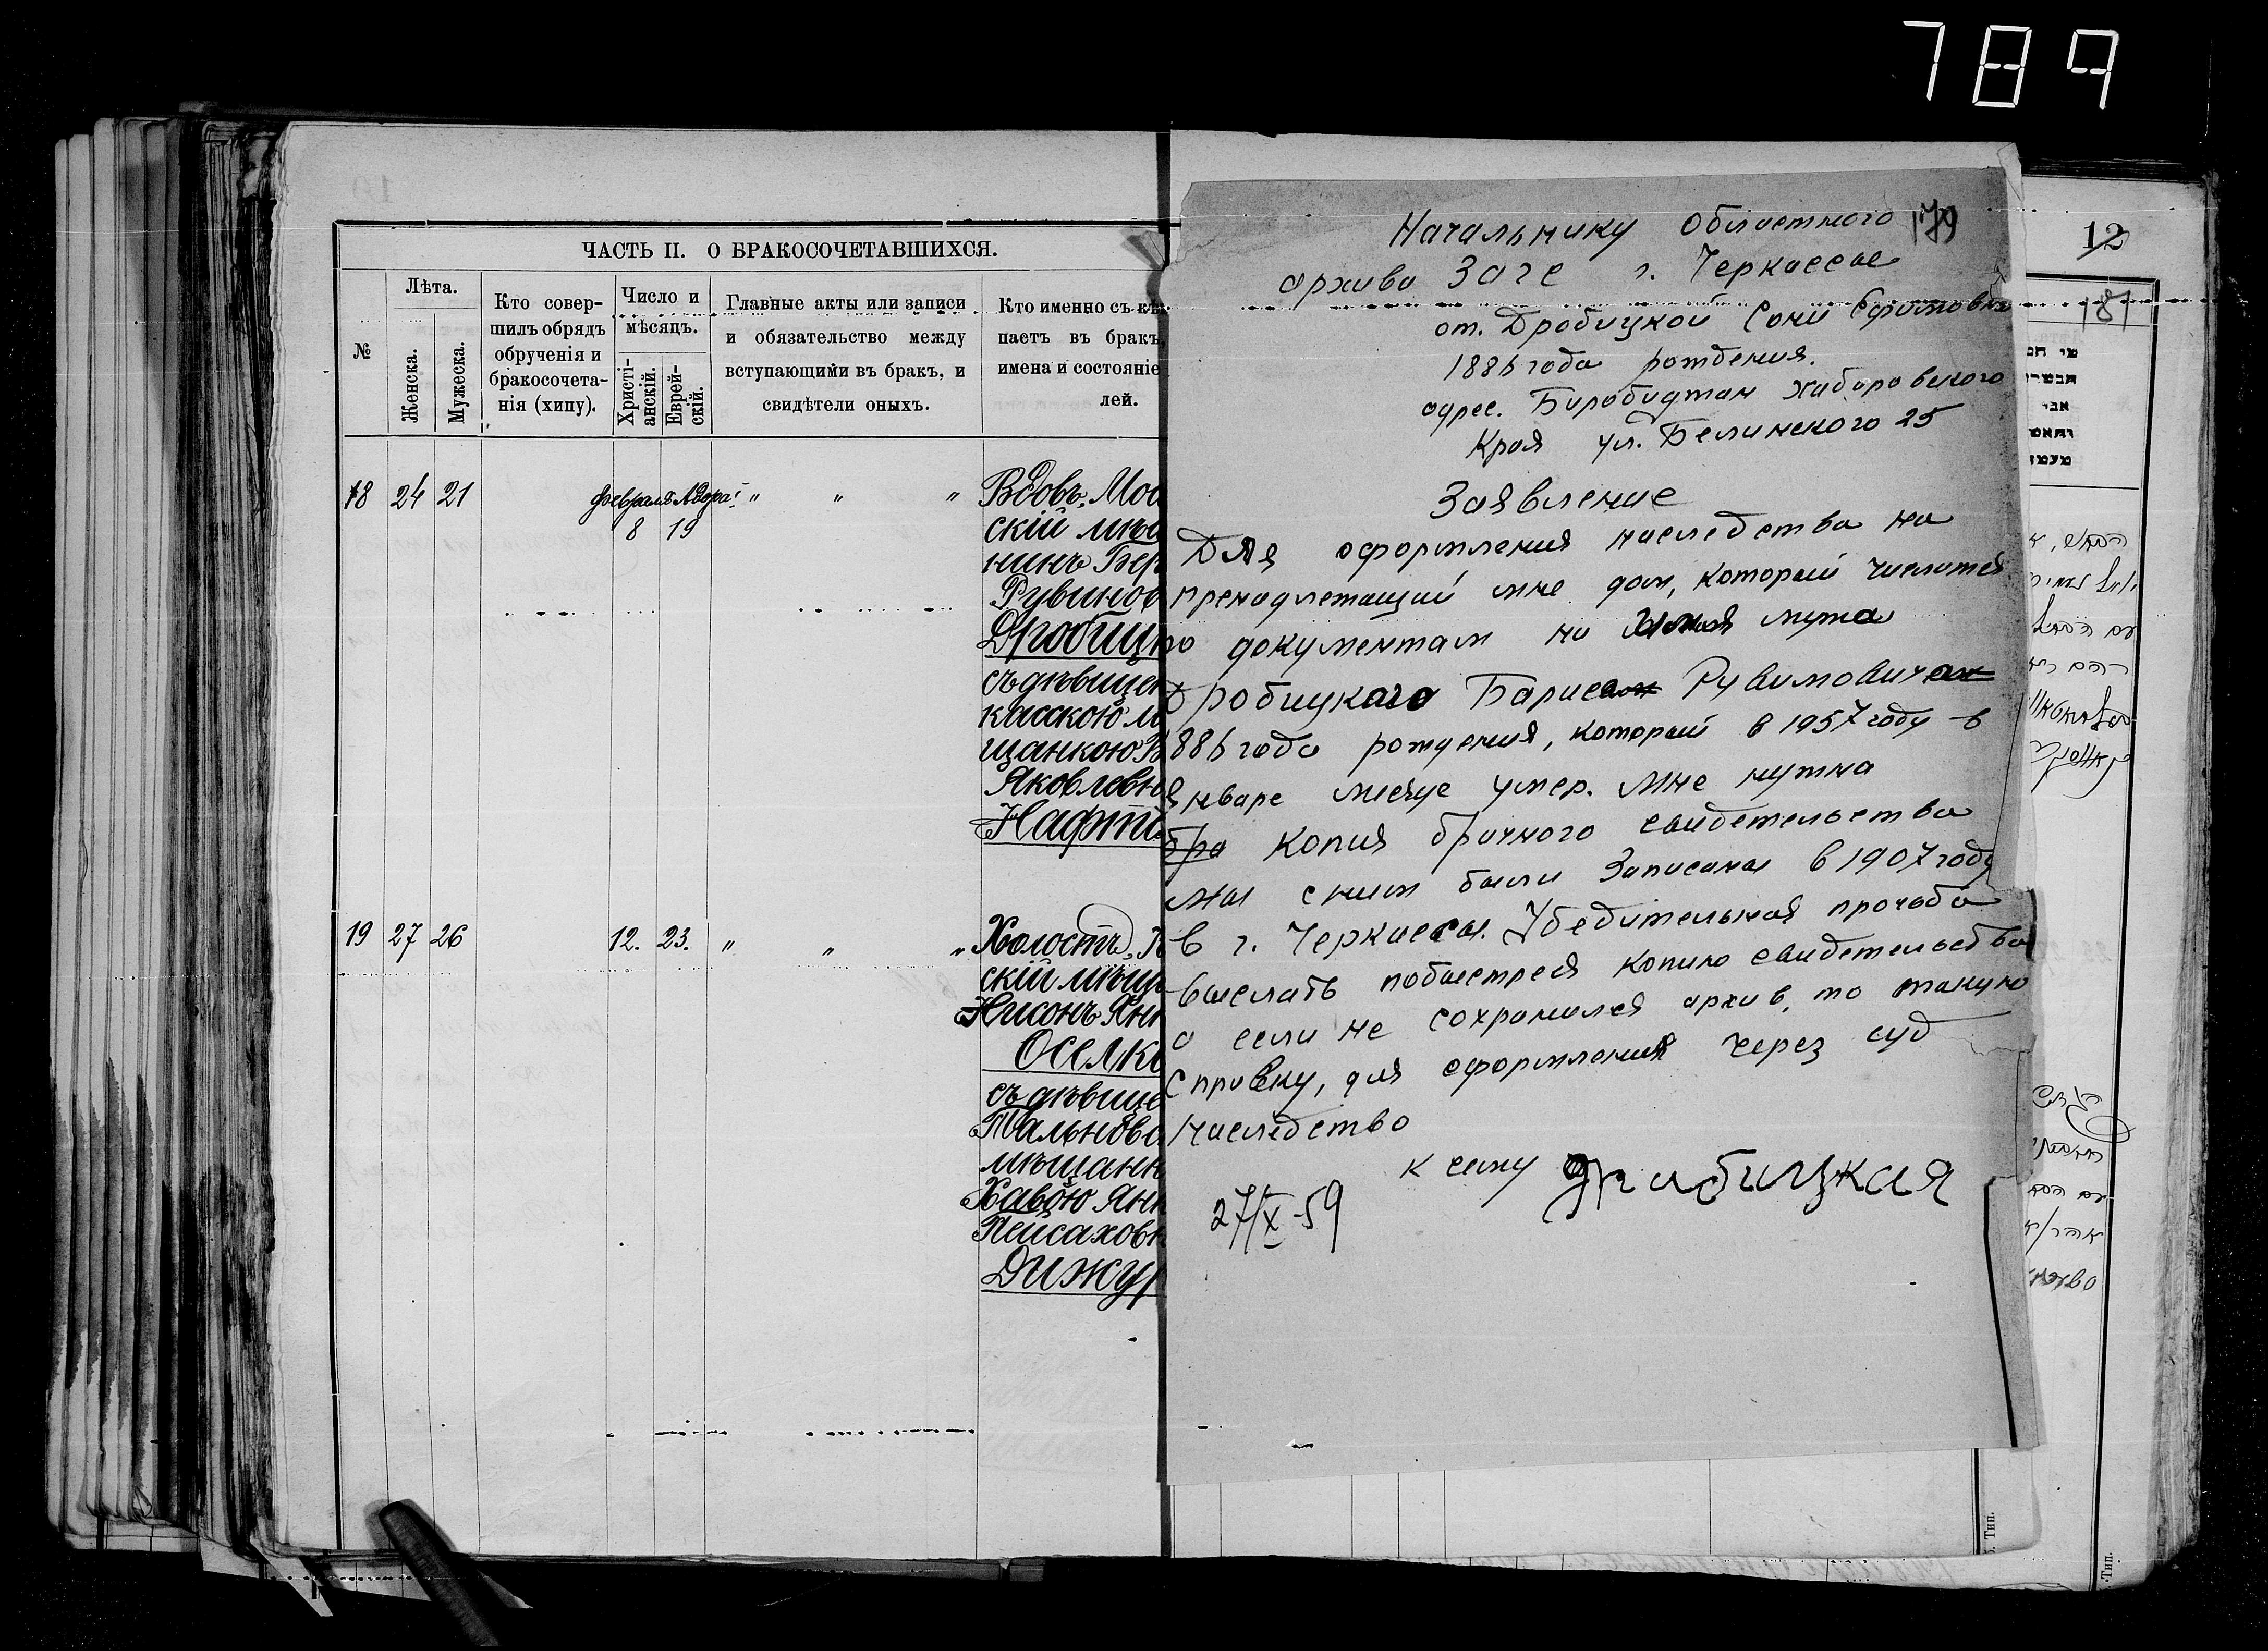 789
ЧАСТЬ II. О БРАКОСОЧЕТАВШИХСЯ.
№
Лѣта.
Женска.
Мужеска.
Кто совер-
шилъ обрядъ
обрученія и
бракосочета-
нія (хипу).
Число и
мѣсяцъ.
Христі-
анскій.
Еврей-
скій.
Главные акты или записи
и обязательство между
вступающими въ бракъ, и
свидѣтели оныхъ.
Кто именно съ кѣ
паетъ въ бракъ,
имена и состояніе
лей.
18 24 21 февраля Адара " " "
8 19
Вдовъ, Мос
скій мѣщ
нинъ Бер
Рувинов
Дробицк
съ дѣвицен
касскою м
щанкою
Яковлевн
Нафта
19 27 26 12. 23. " " "
Холостъ,
скій мѣщ
Нисонъ Янк
Оселк
съ дѣвице
Тальновс
мѣщанк
Хавою Янк
Пейсаховн
Дижур
Начальнику областного 179
архива Загс г. Черкассы
от. Дробицкой Сони Ефимовны
1886 года рождения.
адрес. Биробиджан Хабаровского
Края ул. Белинского 25
Заявление
Для оформления наследства на
пренадлежащий мне дом, который числится
по документам на имя мужа
Дробицкого Барис Рувимовича
1886 года рождения, который в 1957 году в
январе месяце умер. Мне нужна
бра Копия брачного свидетельства
мы с ним были Записаны в 1907 году
в г. Черкассы. Убедительная прочьба
выслать побыстрея копию свидетельства
а если не сохранился архив, то такую
справку, для оформления через суд
наследство
к сему Драбицкая
27/X-59
12
181
אבי
. Тип.
.Тип.